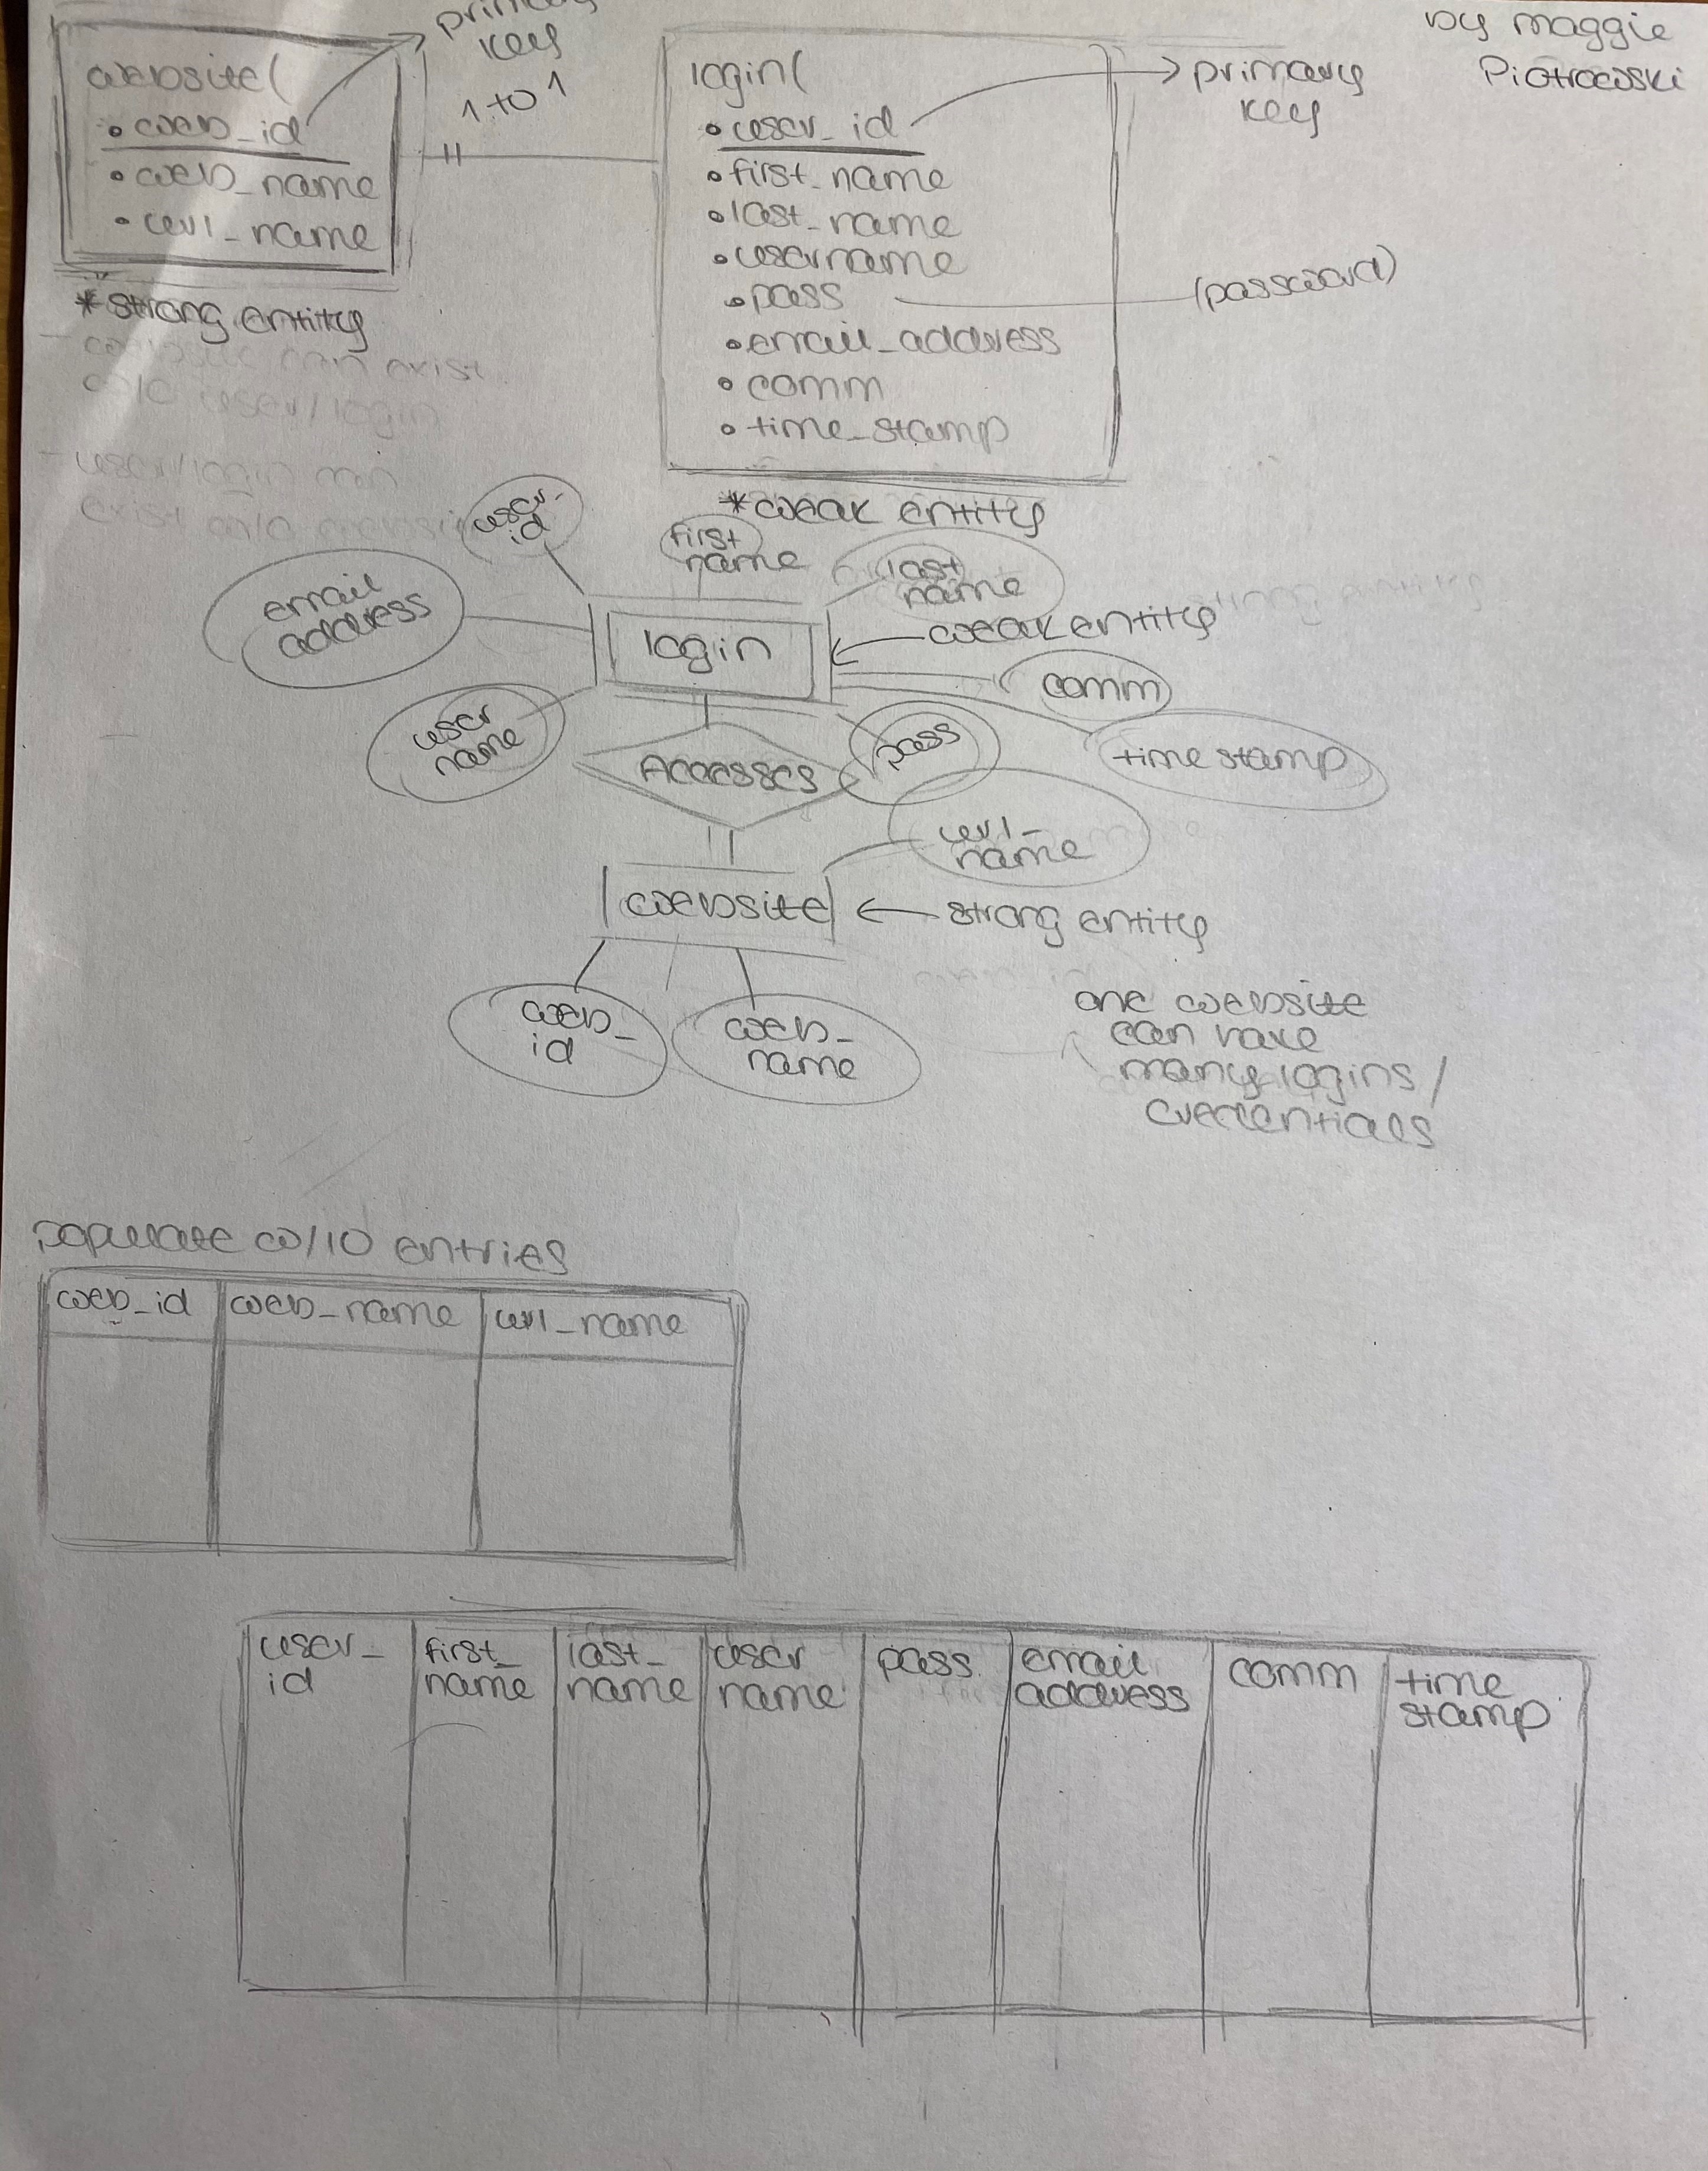 by maggie
Piotrowski
primary
key
1 to 1
website(
• web_id
• web_name
• url_name
*strong entity
can exist
w/o user/login
user/login
exist w/o
login(
• user_id
• first_name
• last_name
• username
• pass
• email_address
• comm
• time_stamp
primary
key
(password)
*weak entity
user_
id
first
name
last
name
email
address
login
weak entity
strong entity
comm
user
name
pass
time stamp
Accesses
url_
name
website
strong entity
web_
id
web_
name
one website
can have
many logins/
credentials
populate w/10 entries
web_id web_name url_name
user_
id
first_
name
last_
name
user
name
pass
email
address
comm
time
stamp